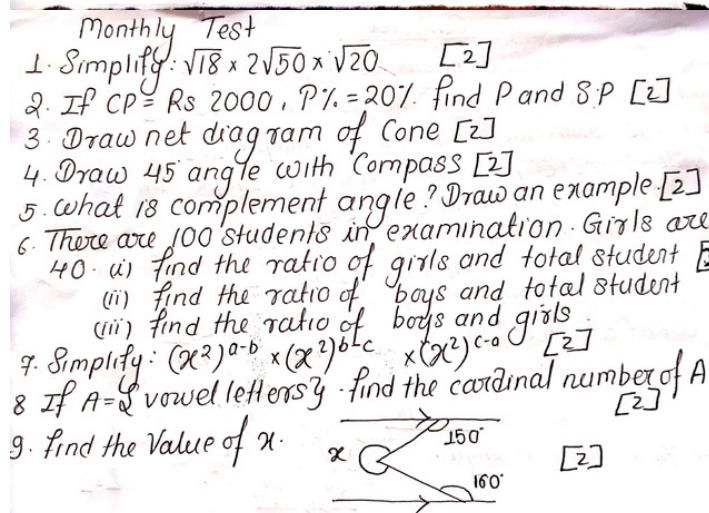 Monthly Test
1. Simplify: √18 x 2√50 x √20 [2]
2. If CP = Rs 2000, P% = 20% find P and S.P [2]
3. Draw net diagram of Cone [2]
4. Draw 45 angle with Compass [2]
5. what is complement angle? Draw an example [2]
6. There are 100 students in examination. Girls are
40. (i) find the ratio of girls and total student
(ii) find the ratio of boys and total student
(iii) find the ratio of boys and girls.
7. Simplify: (x²)ᵃ⁻ᵇ x (x²)ᵇ⁻ᶜ x (x²)ᶜ⁻ᵃ [2]
8 If A = { vowel letters} . find the cardinal number of A
[2]
9. find the Value of x.
x 150° [2]
160°